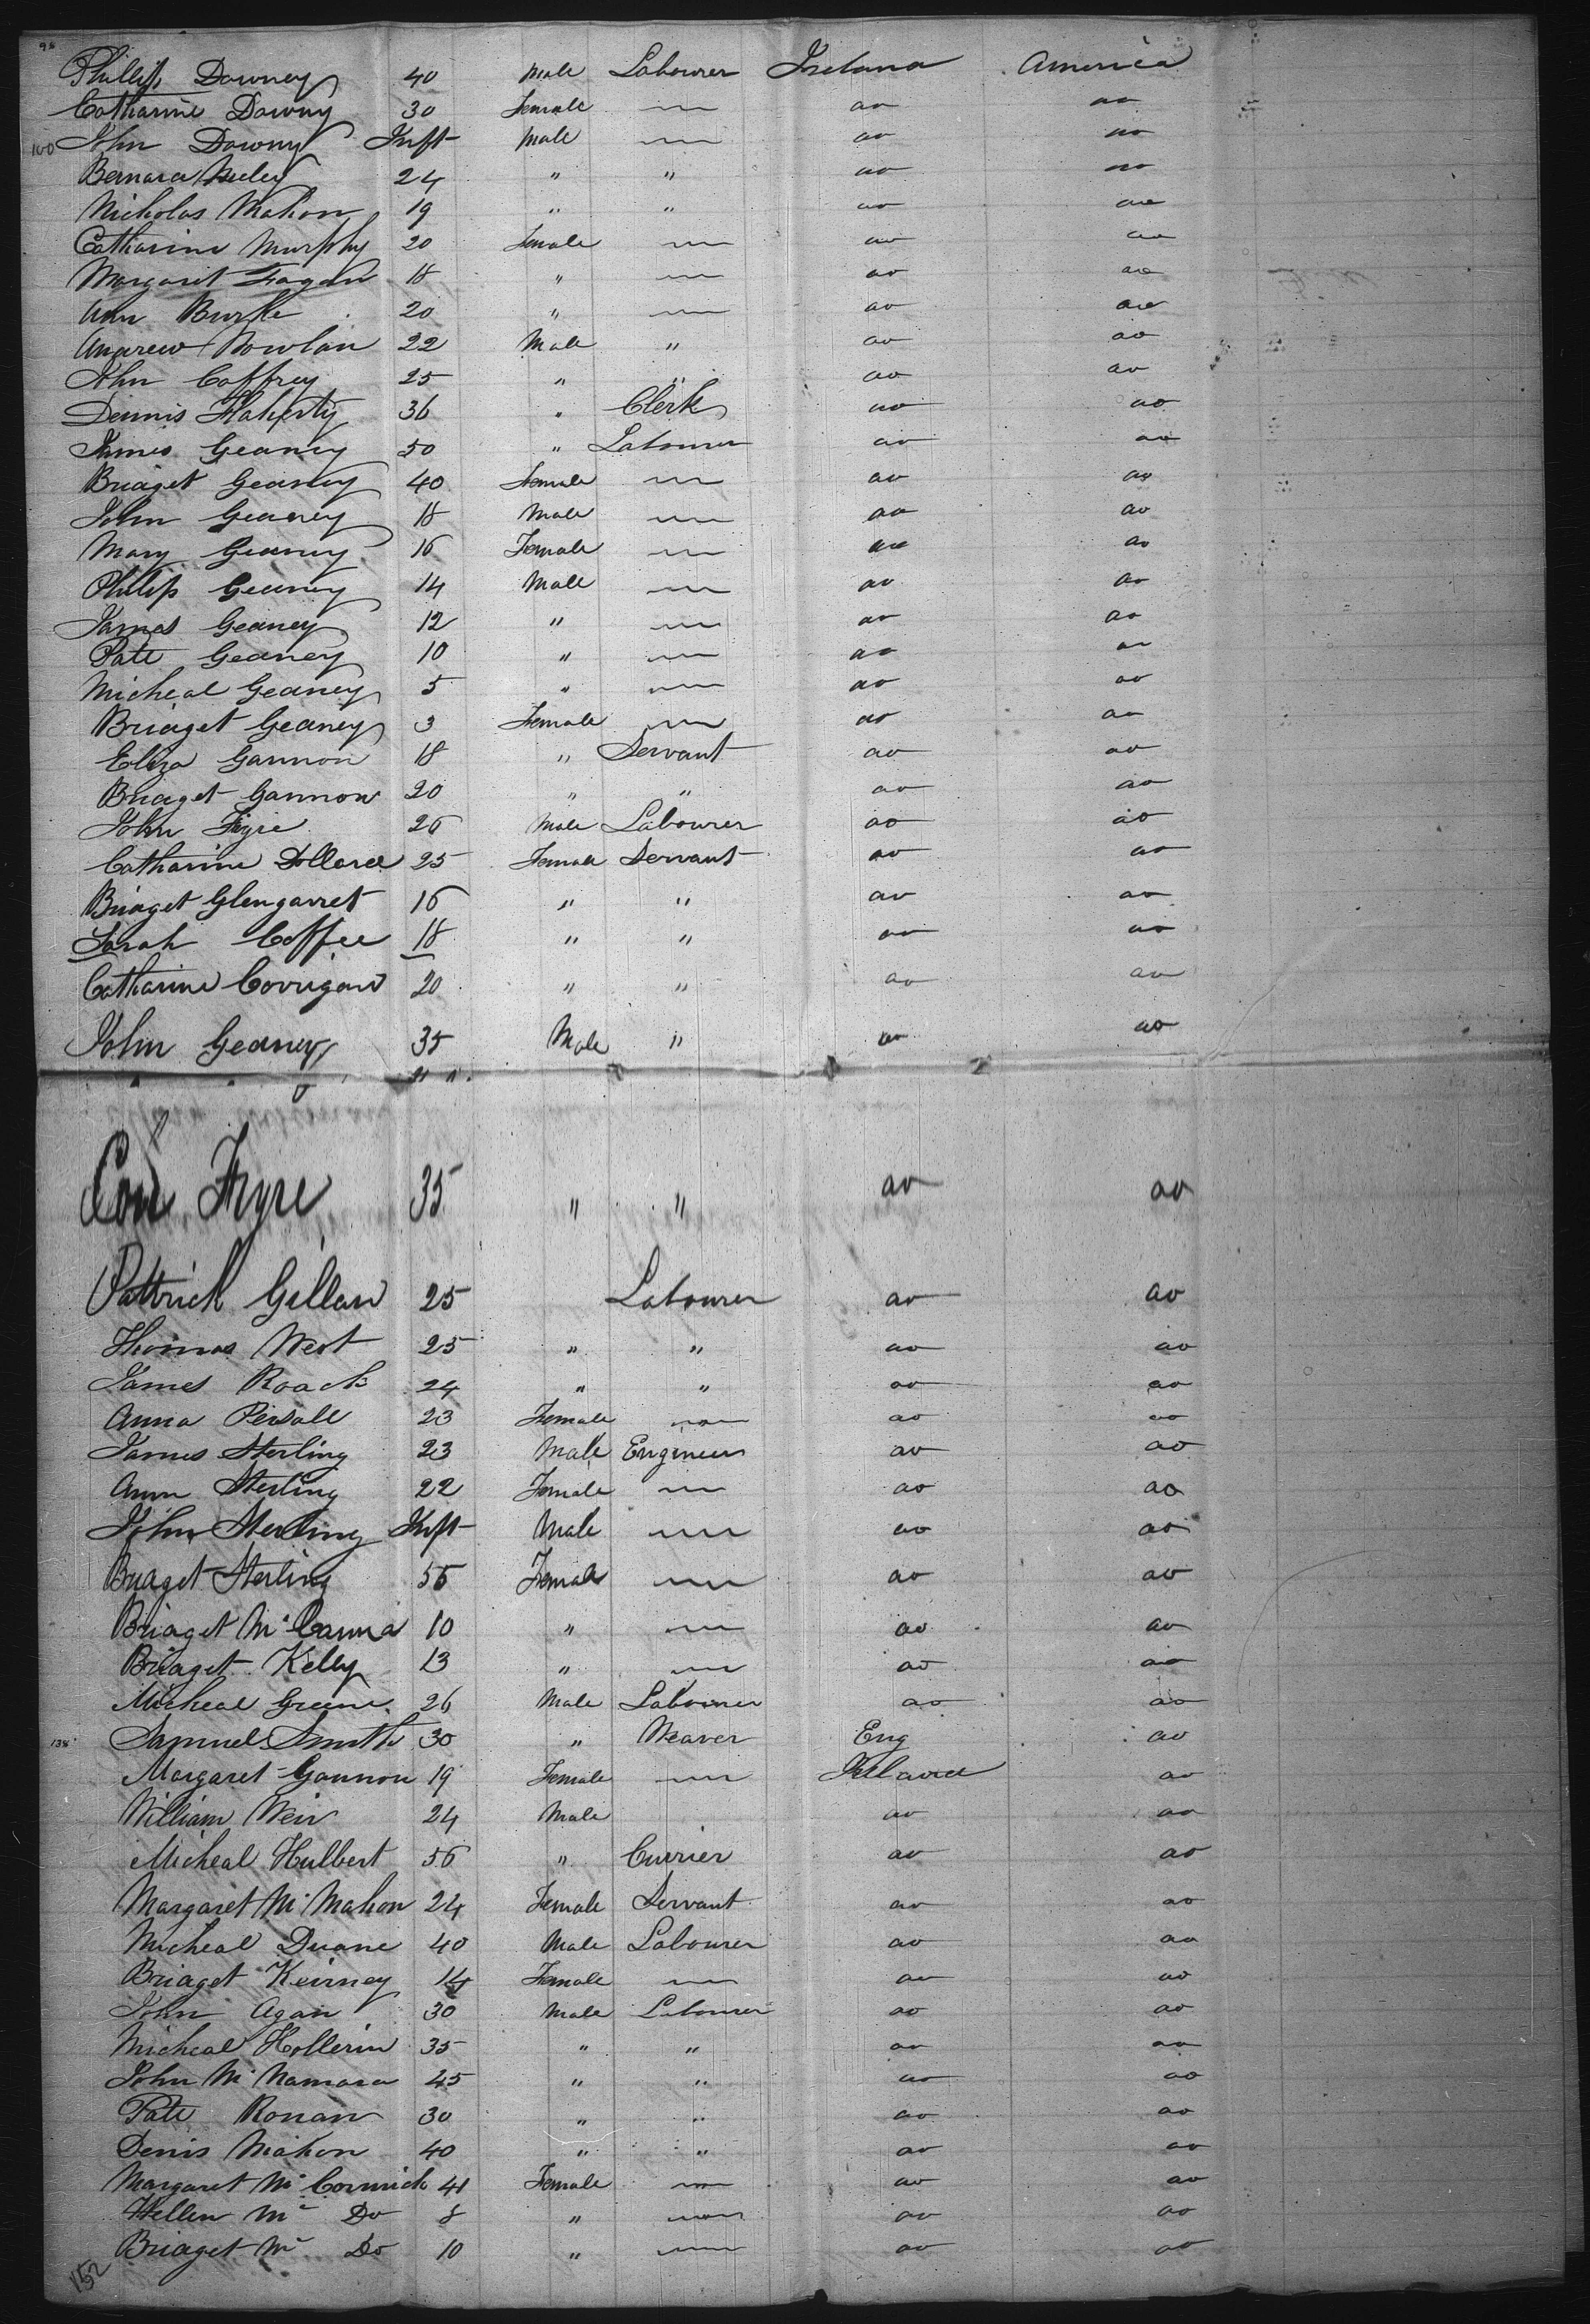 98
Phillip Downey 40 Male Labourer Ireland America
Catharine Downy 30 Female do do
100 John Downy Inft Male do do
Bernard 24 " " do do
Nicholas Mahon 19 " " do do
Catharine Murphy 20 Female do do
Margaret Fagan 18 " do do
Ann Burke 20 " do do
Andrew Nowlan 22 Male " do do
John Caffrey 25 " " do do
Dennis Flaherty 36 " Clerk do do
James Geaney 50 " Labourer do do
Bridget Geaney 40 Female do do
John Geaney 18 Male do do
Mary Geaney 16 Female do do
Philip Geaney 14 Male do do
James Geaney 12 " do do
Patt Geaney 10 " do do
Micheal Geaney 5 " do do
Bridget Geaney 3 Female do do
Eliza Gannon 18 " Servant do do
Bridget Gannon 20 " " do do
John 26 Male Labourer do do
Catharine Dollard 25 Female Servant do do
Bridget Glengarret 16 " " do do
Sarah Coffee 18 " " do do
Catharine Corrigan 20 " " do do
John Geaney 35 Male " do do
35 " " do do
Pattrick Gillan 25 Labourer do do
Thomas West 25 " " do do
James Roach 24 " " do do
Anna Persall 23 Female do do
James Sterling 23 Male Engineer do do
Ann Sterling 22 Female do do
John Sterling Inft Male do do
Bridget Sterling 55 Female do do
Bridget Mc Canna 10 " do do
Bridget Kelly 13 " do do
Micheal Green 26 Male Labourer do do
138 Samuel Smith 30 " Weaver Eng do
Margaret Gannon 19 Female Ireland do
William Weir 24 Male do do
Micheal Hulbert 56 " Currier do do
Margaret Mc Mahon 24 Female Servant do do
Micheal Duane 40 Male Labourer do do
Bridget Keirney 14 Female do do
John Agan 30 Male Labourer do do
Micheal Hollerin 35 " " do do
John Mc Namara 45 " " do do
Patt Ronan 30 " " do do
Denis Mahon 40 " " do do
Margaret Mc Cormick 41 Female do do
Hellen Mc Do 8 " do do
Bridget Mc Do 10 " do do
152